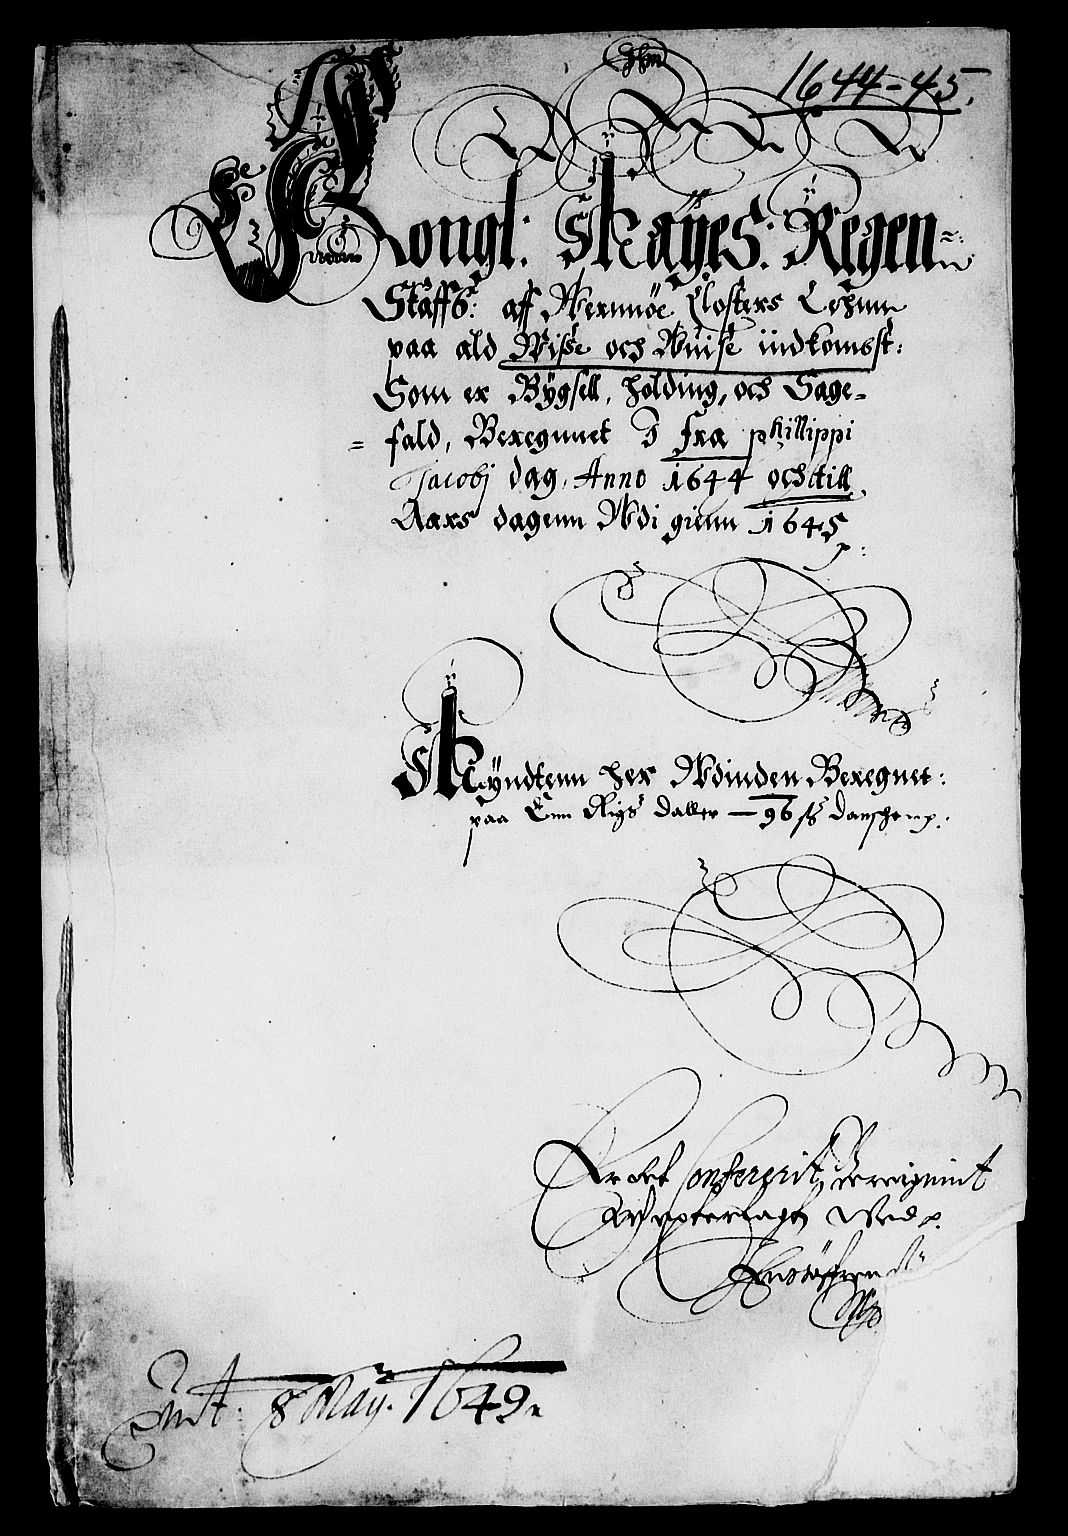 1644-45.
Kongl: Mayes: Regen=
Skaffs: aff Wernnöe Closters Lehnn
paa ald Wisse och Wuise indkombst:
Som er Bÿgsell, holding, och Sage=
= fald, Beregnnet I fra phillippi
Jacobj dag, Anno 1644 och till
Aars dagenn Adi gienn 1645
Mÿndtenn her Udinden Beregnet:
paa Enn Rigs daller — 96 ſs danshe
Er det Confererit,
wed
8 May. 1649